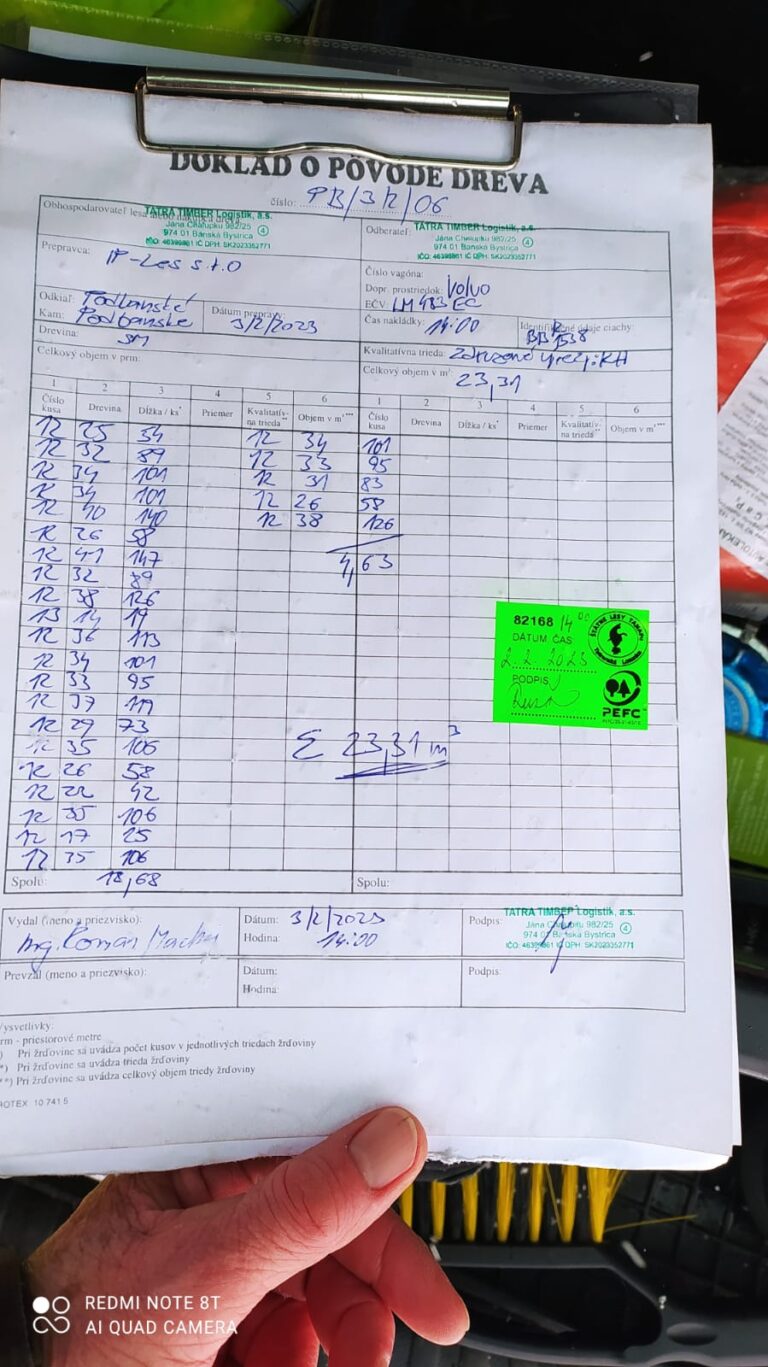 DOKLAD O PÔVODE DREVA
číslo: PB/3/2/06
Obhospodarovateľ lesa
TATRA TIMBER Logistik, a.s.
974 01 Banská Bystrica
IČO: 46395861 IČ DPH: SK2023352771
Odberateľ:
TATRA TIMBER Logistik, a.s.
974 01 Banská Bystrica
IČO: 46395861 IČ DPH: SK2023352771
Prepravca: IP-Les s.r.o
Číslo vagóna:
Dopr. prostriedok: Volvo
EČV: LM 483 EC
Odkiaľ: Podbanské
Kam: Podbanske
Dátum prepravy: 3/2/2023
Čas nakládky: 14:00
Identifikačné údaje ciachy:
Drevina: SM
Kvalitatívna trieda:
Celkový objem v prm:
Celkový objem v m³: 23,31
1 2 3 4 5 6 1 2 3 4 5 6
Číslo kusa Drevina Dĺžka / ks* Priemer Kvalitatív-na trieda** Objem v m³*** Číslo kusa Drevina Dĺžka / ks* Priemer Kvalitatív-na trieda** Objem v m³***
12 25 54 12 34 101
12 32 89 12 33 95
12 34 101 12 31 83
12 34 101 12 26 58
12 40 140 12 38 126
12 26 58
12 41 147 4,63
12 32 89
12 38 126
13 14 19
12 36 113
12 34 101
12 33 95
12 37 119
12 29 73
12 35 106
12 26 58
12 22 42
12 35 106
12 17 25
12 35 106
Σ 23,31 m³
82168 14⁰⁰
DÁTUM ČAS
2.2.2023
PODPIS
ŠTÁTNE LESY TANAPU
PEFC
Spolu: 18,68 Spolu:
Vydal (meno a priezvisko):
Ing. Roman
Dátum: 3/2/2023
Hodina: 14:00
Podpis:
TATRA TIMBER Logistik, a.s.
974 01 Banská Bystrica
IČO: 46395861 IČ DPH: SK2023352771
Prevzal (meno a priezvisko):
Dátum:
Hodina:
Podpis
Vysvetlivky:
rm - priestorové metre
) Pri žrďovine sa uvádza počet kusov v jednotlivých triedach žrďoviny
*) Pri žrďovine sa uvádza trieda žrďoviny
**) Pri žrďovine sa uvádza celkový objem triedy žrďoviny
ROTEX 10 741 5
REDMI NOTE 8T
AI QUAD CAMERA